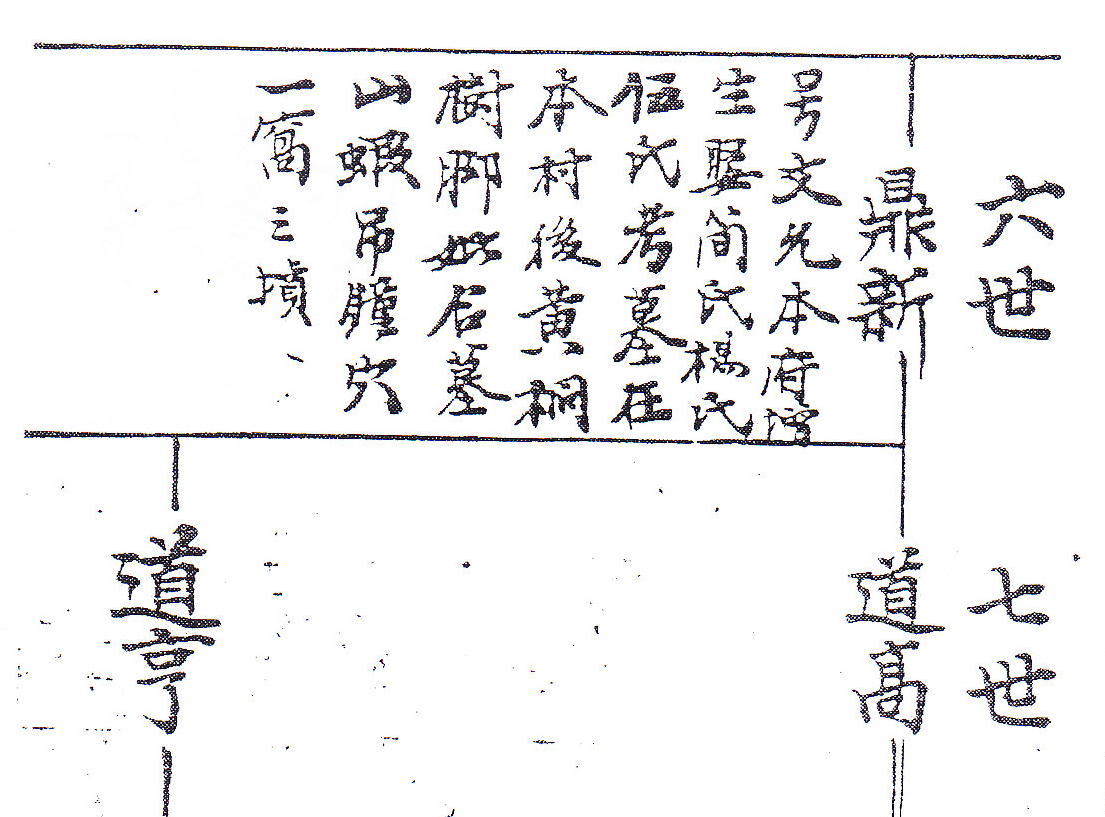 六世
鼎新
号文允本府增
生娶简氏楊氏
伍氏考墓在
本村後黄桐
樹脚妣后墓
山蝦吊瞳穴
一窩三墳、
七世
道高
道亨